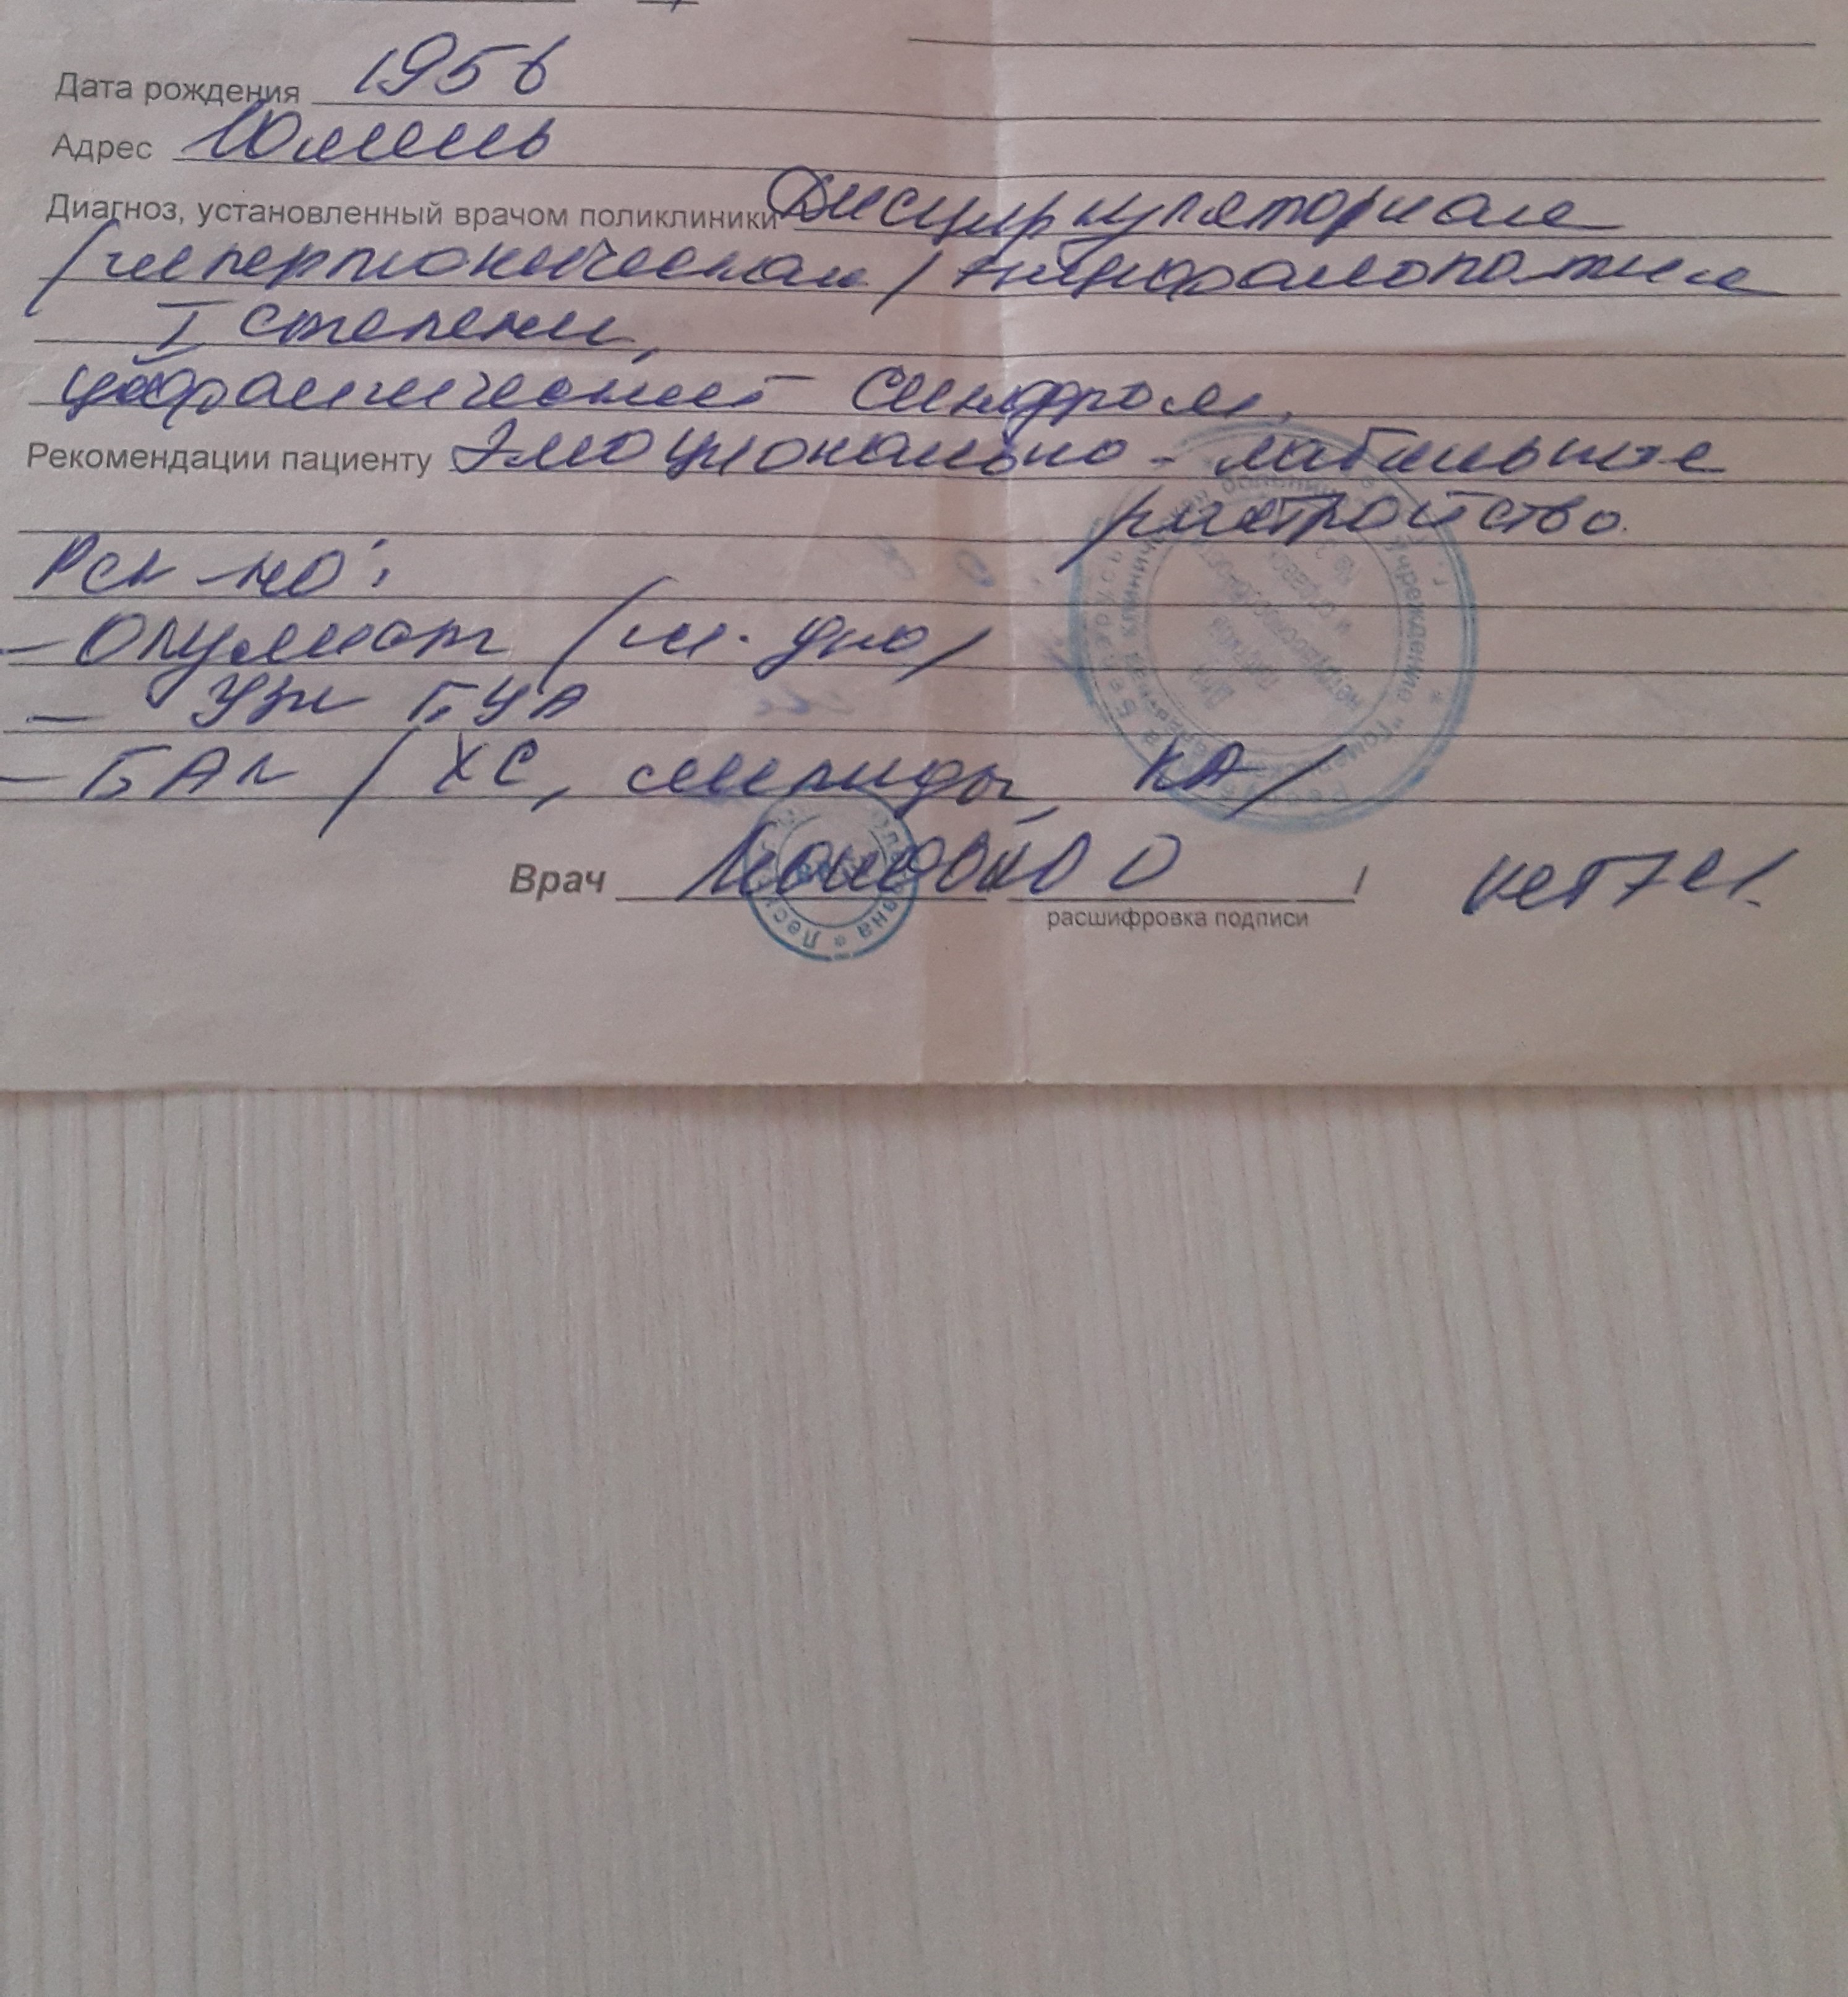 Дата рождения 1956
Адрес
Диагноз, установленный врачом поликлиники Дисциркуляторная
/гипертоническая/ энцефалопатия
I степени,
цефалгический синдром,
Рекомендации пациенту Эмоционально-лабильное
расстройство.
Рек-но:
- Окулист (гл. дно)
- УЗИ БЦА
- БАК /ХС, липиды, КА/
Врач
расшифровка подписи